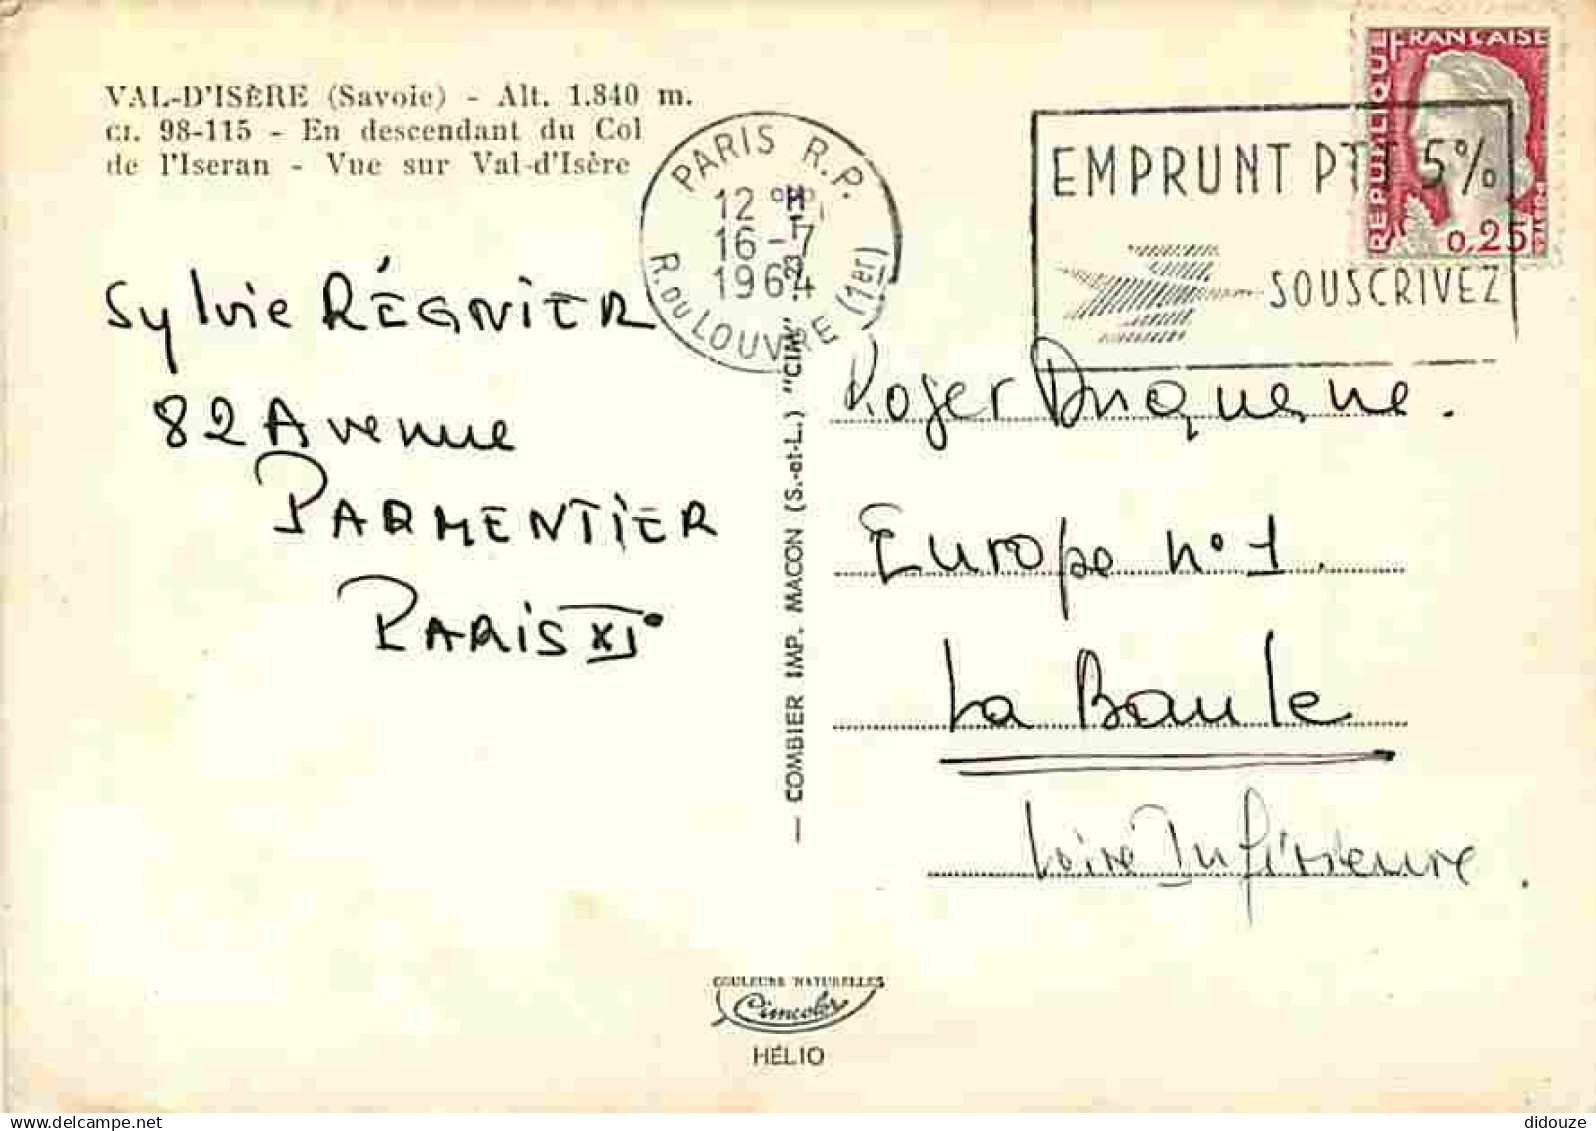 VAL-D'ISÈRE (Savoie) - Alt. 1.840 m.
CI. 98-115 - En descendant du Col
de l'Iseran - Vue sur Val-d'Isère
Sylvie RÉGNIER
82 Avenue
PARMENTIER
PARIS XI°
PARIS R.P.
12 H
16-7
1964
R. DU LOUVRE (1er)
EMPRUNT PTT 5%
SOUSCRIVEZ
RÉPUBLIQUE FRANÇAISE
0,25
— COMBIER IMP. MACON (S.-et-L.) "CIM"
Roger Duquesne.
Europe n°1.
La Baule
Loire Inférieure.
COULEURS NATURELLES
Cimcolor
HÉLIO
didouze © Delcampe.net